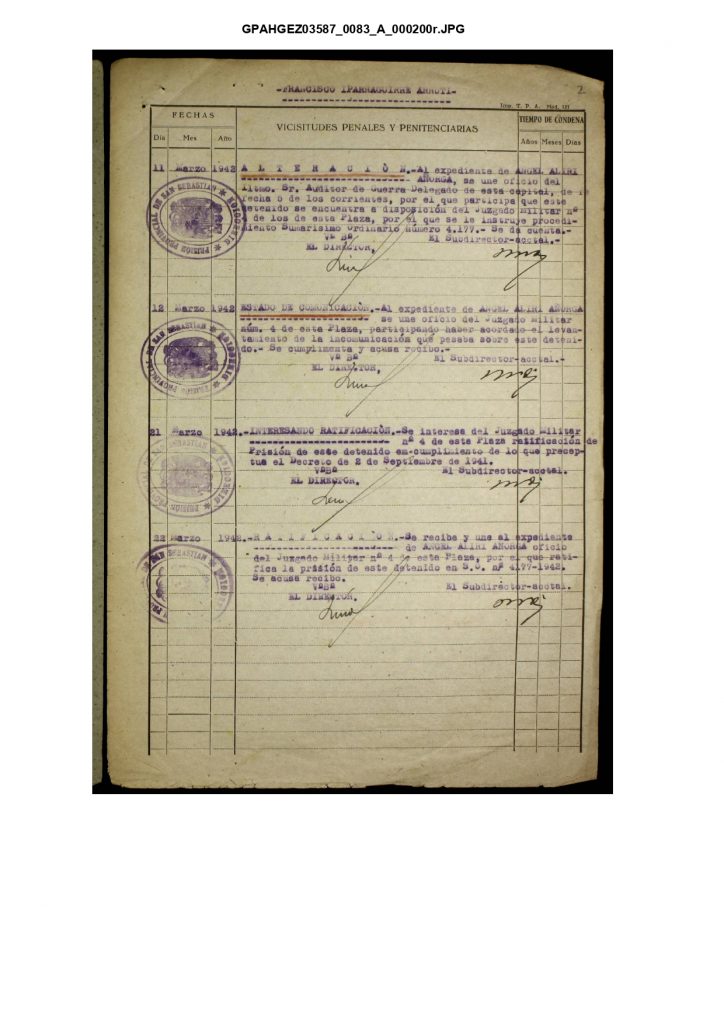 GPAHGEZ03587_0083_A_000200r.JPG
2
-FRANCISCO IPARRAGUIRRE ARRUTI-
Imp. T. P. A. Mod. 121
FECHAS
VICISITUDES PENALES Y PENITENCIARIAS
TIEMPO DE CONDENA
Día Mes Año
Años Meses Días
11 Marzo 1942 A L T E R A C I Ò N.-Al expediente de ANGEL ALIRI
AÑORGA, se une oficio del
Iltmo. Sr. Auditor de Guerra Delegado de esta capital, de
fecha 6 de los corrientes, por el que participa que este
detenido se encuentra a disposición del Juzgado Militar nº
de los de esta Plaza, por el que se le instruye procedi-
miento Sumarísimo Ordinario número 4.177.- Se da cuenta.-
Vº Bº El Subdirector-acctal.-
EL DIRECTOR,
PRISIÓN PROVINCIAL DE SAN SEBASTIAN * DIRECCIÓN *
12 Marzo 1942 ESTADO DE COMUNICACIÒN.-Al expediente de ANGEL ALIRI AÑORGA
se une oficio del Juzgado Militar
núm. 4 de esta Plaza, participando haber acordado el levan-
tamiento de la incomunicación que pesaba sobre este deteni-
do.- Se cumplimenta y acusa recibo.-
Vº Bº El Subdirector-acctal.-
EL DIRECTOR,
PRISIÓN PROVINCIAL DE SAN SEBASTIAN * DIRECCIÓN *
21 Marzo 1942.-INTERESANDO RATIFICACIÒN.-Se interesa del Juzgado Militar
nº 4 de esta Plaza ratificación de
Prisión de este detenido em cumplimiento de lo que precep-
tua el Decreto de 2 de Septiembre de 1941.
VºBº El Subdirector-acctal.
EL DIRECTOR.
22 Marzo 1942.-R A T I F I C A C I Ò N.-Se recibe y une al expediente
de ANGEL ALIRI AÑORGA oficio
del Juzgado Militar nº 4 de esta Plaza, por el que rati-
fica la prisión de este detenido en S.O. nº 4177-1942.
Se acusa recibo.
VºBº El Subdirector-acctal.
EL DIRECTOR,